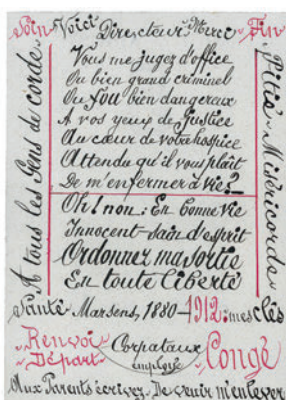 Soin Voici Directeur Merci Fin
A tous les Gens de corde
Vous me jugez d'office
Ou bien grand criminel
Ou fou bien dangereux
A vos yeux de Justice
Au cœur de votre hospice
Attendu qu'il vous plaît
De m'enfermer à vie?
Oh! non: En bonne vie
Innocent sain d'esprit
Ordonnez ma sortie
En toute liberté
Pitié Miséricorde
Santé Marsens, 1880-1912: mes clés
Renvoi Corpataux Congé
Départ employé
Aux Parents écrivez De venir m'enlever